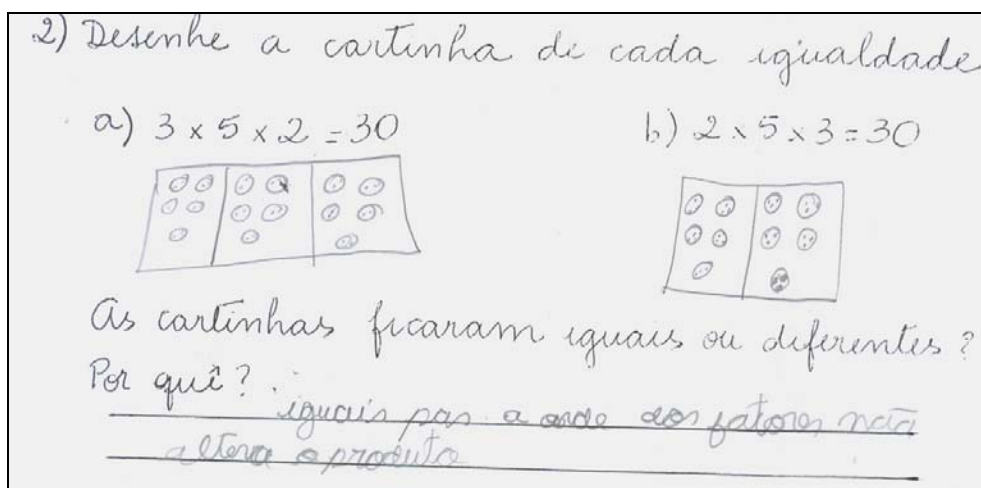 2) Desenhe a cartinha de cada igualdade
a) 3 x 5 x 2 = 30 b) 2 x 5 x 3 = 30
As cartinhas ficaram iguais ou diferentes?
Por quê?
iguais pois a orde dos fatores não
altera o produto